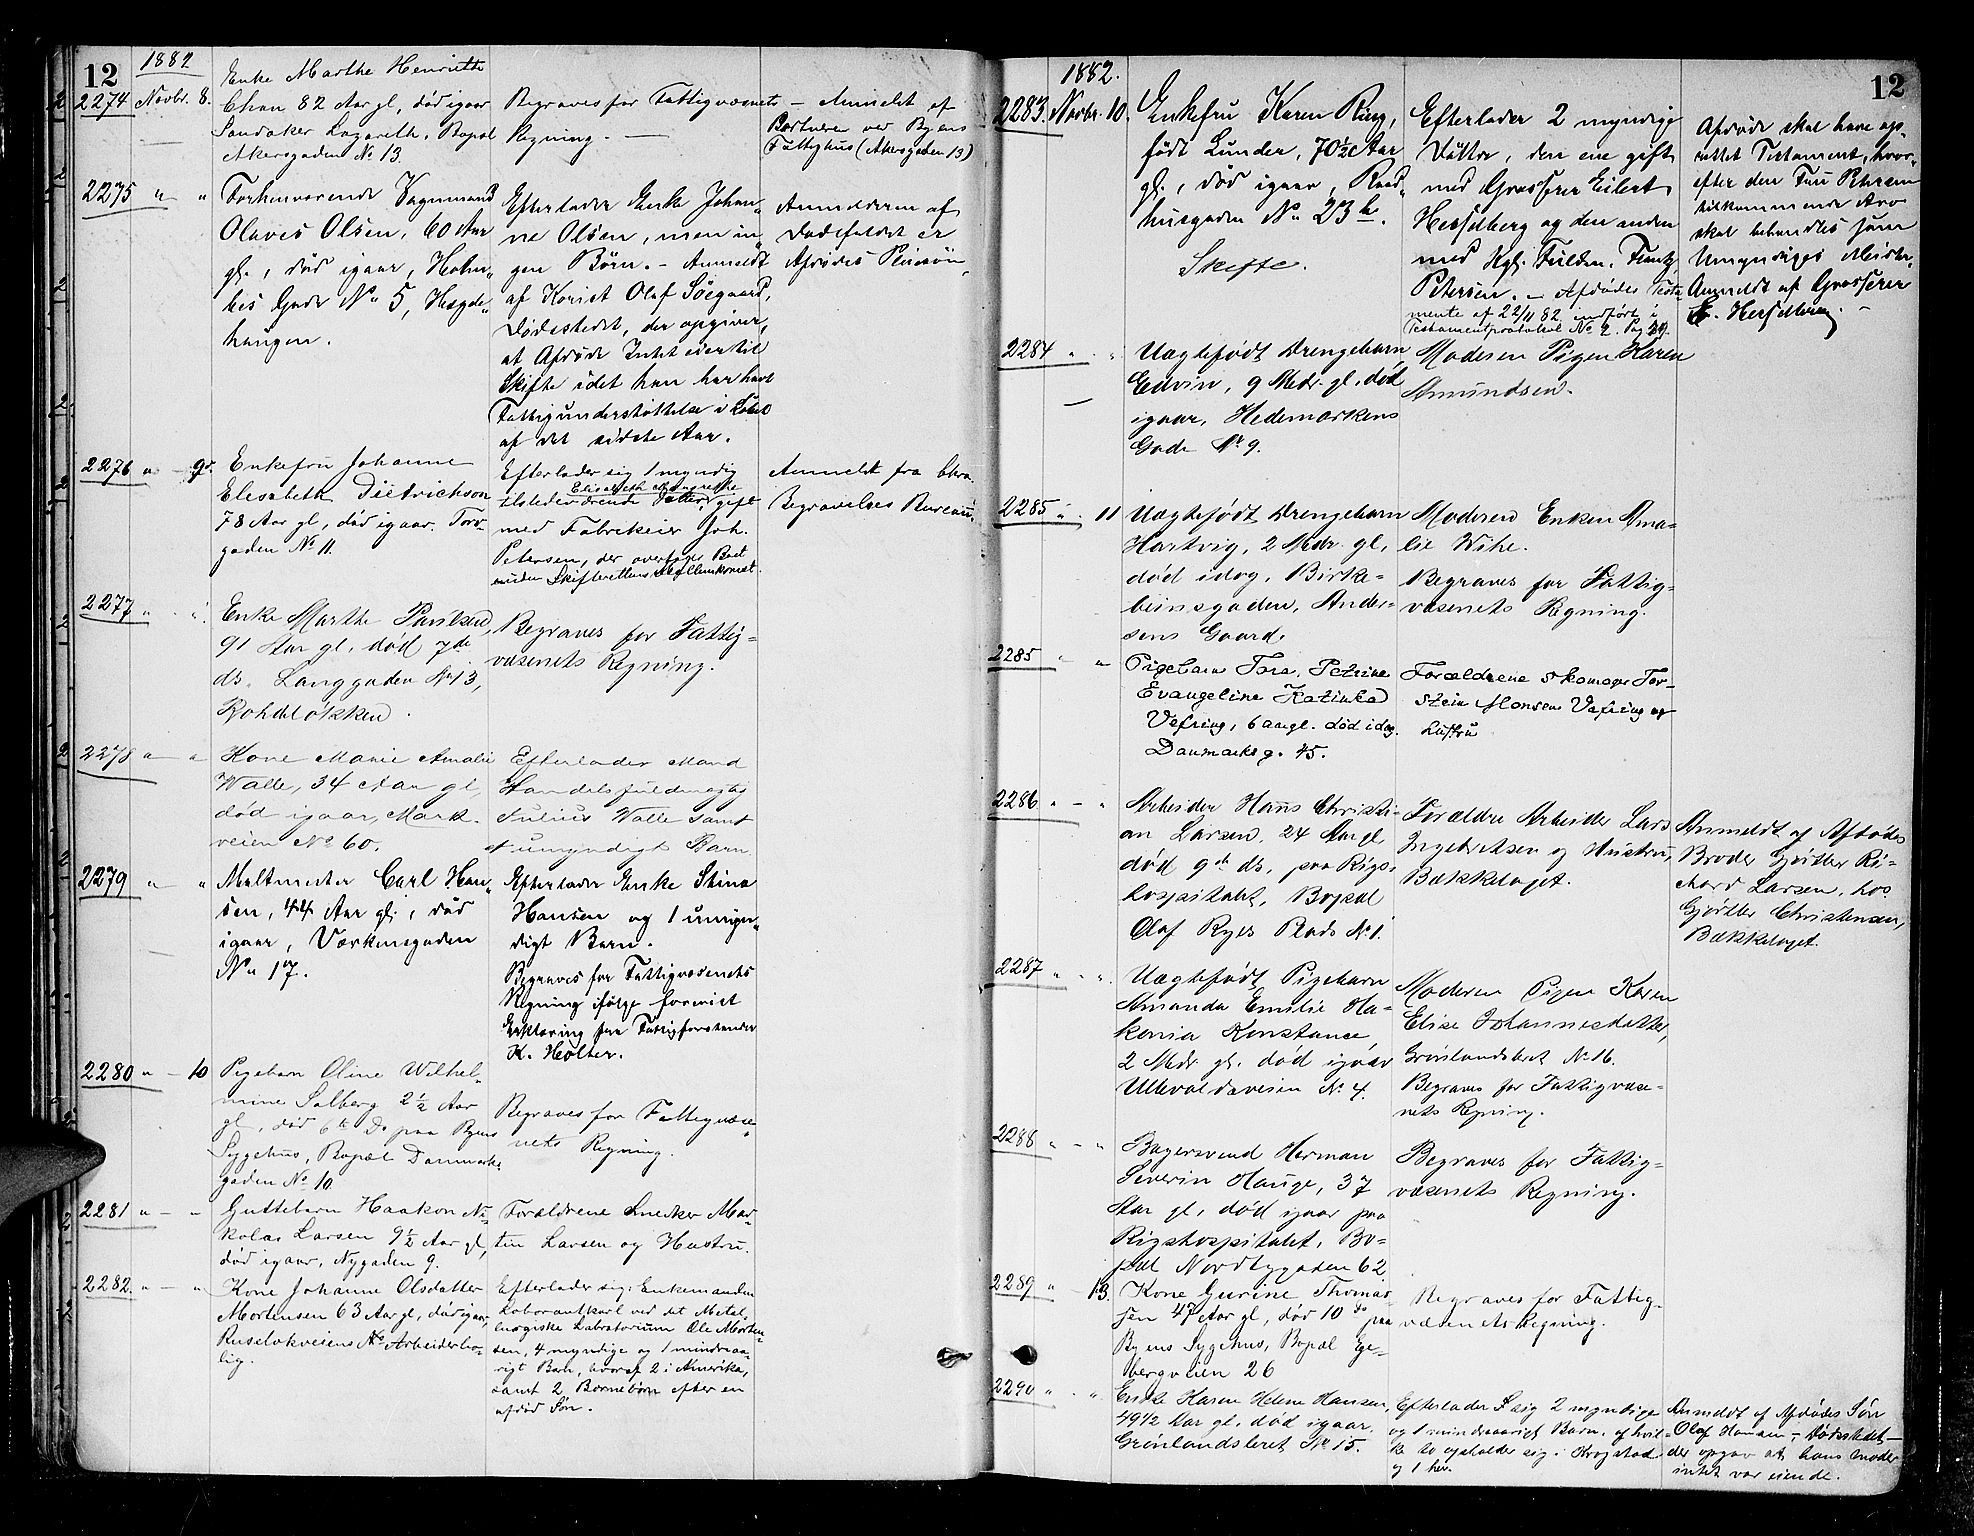 12
1882
2274 Novbr. 8.
Enke Marthe Henriette
Chan 82 Aar gl, død igaar
Sandaker Lazareth, Bopæl
Akersgaden No 13.
Begraves for Fattigvæsnets
Regning. —
— Anmeldt af
Portneren ved Byens
Fattighus (Akersgaden 13)
2275 " "
Forhenværende Vognmand
Olaves Olsen, 60 Aar
gl., død igaar, Holm-
boes Gade No 5, Hægde-
haugen.
Efterlader Enke Johan-
ne Olsen, men in-
gen Børn. - Anmeldt
af Korist Olaf Söegaard,
Dødsstedet, der opgiver,
at Afdøde Intet eier til
Skifte idet han har havt
Fattigunderstøttelse i Løbet
af det sidste Aar.
Anmelderen af
Dødsfaldet er
Afdødes Pleiesøn
2276 " 9de
Enkefru Johanne
Elisabeth Dietrichson
78 Aar gl, død igaar. Torv-
gaden No 11.
Efterlader sig 1 myndig
Elisabeth Margrethe
tilstedeværende Datter, gift
med Fabrikeier Joh.
Petersen, der overtager Boet
uden Skifterettens Mellemkomst.
Anmeldt fra Chra
Begravelses Bureau.
2277 " "
Enke Marthe Paulsen,
91 Aar gl, død 7de
ds. Langgaden No 13,
Rodeløkken.
Begraves for Fattig-
væsenets Regning.
2278 " "
Kone Marie Amalie
Walle, 34 Aar gl,
død igaar, Mark-
veien No 60.
Efterlader Mand
Handelsfuldmægtig
Julius Walle samt
et umyndigt Barn.
2279 " "
Maltmester Carl Han-
sen, 44 Aar gl., død
igaar, Værksgaden
No 17.
Efterlader Enke Stina
Hansen og 1 umyn-
digt Barn.
Begraves for Fattigvæsenets
Regning ifølge forevist
Erklæring fra Fattigforstander
K. Holter.
2280 " — 10
Pigebarn Oline Wilhel-
mine Solberg 2 1/2 Aar
gl, død 6te Ds paa Byens
Sygehus, Bopæl Danmarks
gaden No 10.
Begraves for Fattigvæse-
nets Regning.
2281 " — "
Guttebarn Haakon Ni-
kolai Larsen 9 1/2 Aar gl,
død igaar, Nygaden 9.
Forældrene Snedker Mar-
tin Larsen og Hustru.
2282 " — "
Kone Johanne Olsdatter
Mortensen 63 Aar gl, død igaar,
Ruseløkveiens Arbeiderbo-
lig.
Efterlader sig: Enkemanden
Laborantkarl ved det Metal-
lurgiske Labratorium Ole Morten-
sen, 4 myndige og 1 mindreaa-
rigt Barn, hvoraf 2 i Amerika,
samt 2 Børnebørn efter en
afdød Søn.
12
1882.
2283. Novbr. 10.
Enkefru Karen Ring,
født Lunder, 70 1/2 Aar
gl., død igaar, Raad-
husgaden No 23 b.
Skifte.
Efterlader 2 myndige
Døttre, den ene gift
med Grosserer Eilert
Hesselberg og den anden
med Kgl. Fuldm. Funtz
Petersen. — Afdødes Testa-
mente af 22/11 82 indført i
Testamentprotokol No 2. Pag 29.
Afdøde skal have op-
rettet Testament, hvor-
efter den Fru Petersen
tilkommende Arv
skal behandles som
Umyndiges Midler.
Anmeldt af Grosserer
E. Hesselberg. —
2284 " "
Uægtefødt Drengebarn
Edvin, 9 Mdr. gl. død
igaar, Hedemarkens
Gade No 9.
Moderen Pigen Karen
Amundsen.
2285 " 11
Uægtefødt Drengebarn
Hartvig, 2 Mdr. gl,
død idag, Birke-
beinsgaden, Ander-
sens Gaard.
Moderen Enken Ama-
lie Wihe.
Begraves for Fattig-
væsenets Regning.
2285 " "
Pigebarn Tora Petrine
Evangeline Katinka
Vefring, 6 aar gl. død idag.
Danmarksg. 45.
Forældrene Skomager Tor-
stein Monsen Vefring og
Hustru
2286 " — "
Arbeider Hans Christi-
an Larsen, 24 Aar gl
død 9de ds, paa Rigs-
hospitalet, Bopæl
Olaf Ryes Plads No 1.
Forældre Arbeider Lars
Ingebretsen og Hustru,
Bækkelaget.
Anmeldt af Afdødes
Broder Gjørtler Ri-
chard Larsen, hos
Gjørtler Christensen,
Bækkelaget.
2287 " — "
Uægtefødt Pigebarn
Amanda Emilie Ha-
konia Konstance,
2 Mdr gl. død igaar
Ullevoldsveien No 4.
Moderen Pigen Karen
Elise Johannesdatter,
Grønlandsleret No 16.
Begraves for Fattigvæse-
nets Regning.
2288 " — "
Bagersvend Herman
Severin Hauge, 37
Aar gl, død igaar paa
Rigshospitalet, Bo-
pæl Nordbygaden 62
Begraves for Fattig-
væsenets Regning.
2289 " — 13.
Kone Gurine Thomas-
sen 47 Aar gl, død 10 ds paa
Byens Sygehus, Bopæl Ege-
bergveien 26
Begraves for Fattig-
væsenets Regning.
2290 " "
Enke Karen Helene Hansen,
49 1/2 Aar gl. død igaar
Grønlandsleret No 15.
Efterlader sig 2 myndige
og 1 mindreaarigt Barn. af hvil-
ke to opholder sig i Krogstad
og 1 her.
Anmeldt af Afdødes Søn
Olaf Hansen — Dødsstedet —
der opgav at hans Moder
intet var eiende.